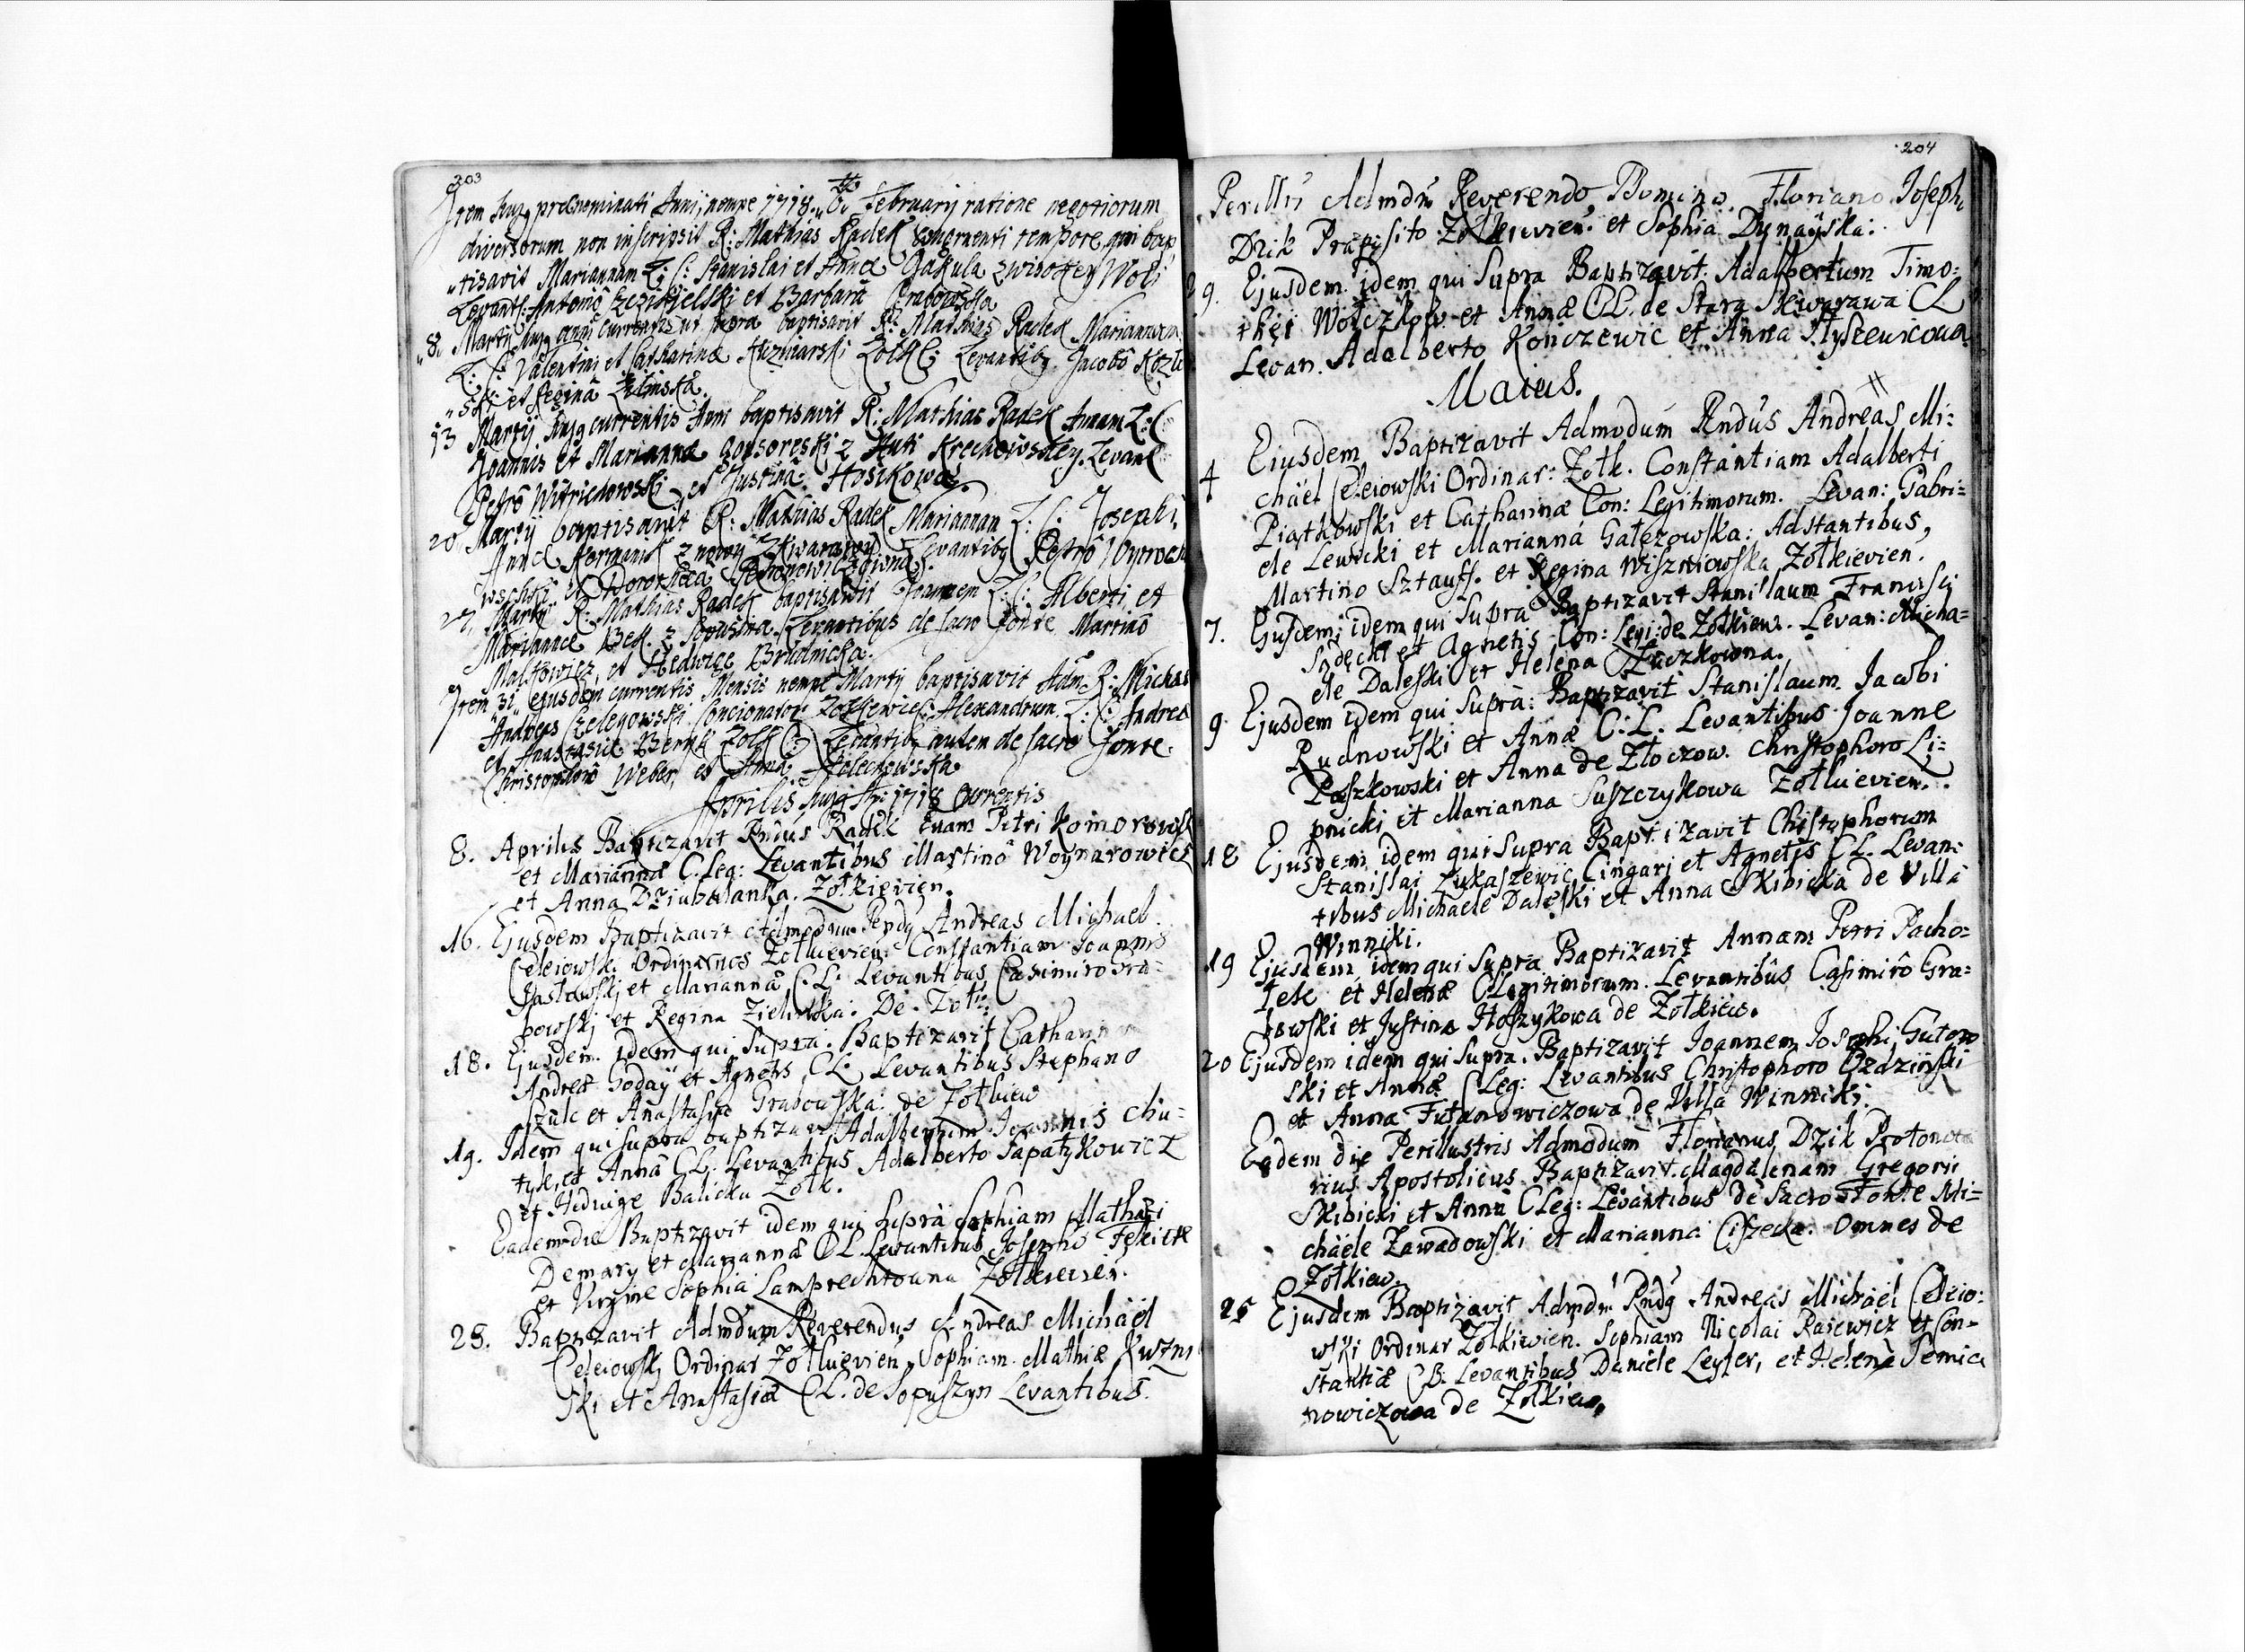 203
Item huj9 prænominati Anni, nempe 1718. 6. February ratione negotiorum
diversorum non inscripsit R: Mathias Radek tempore, qui bap
tisavit Mariannam L: C: Stanislai et Anna Gakula z wisokey Woli
Levant: Antonio et Barbara Grabowska
8. Marty huj9 anni currentis ut supra baptisavit R: Mathias Radek Mariannam
L: C: Valentini et Catharinæ Kuzniarski Zolk: Levantib9 Jacobo Kozlo
ski et Regina Zelinska
13 Marty huj9 currentis Anni baptisavit R: Mathias Radek Annam L: C:
Joannis et Marianna Gonsoreski z Huti Krechowskey. Levant
Petro et Justina Hosikowa.
20 Marty baptisavit R: Mathias Radek Mariannam L: C: Josephi,
Anna Hermanik z nowy Skwarawy. Levantib9 Petro
et Dorothea
27 Marty R: Mathias Radek baptisavit Joannem L: C: Alberti et
Marianna Bek z Sopusina. Levantibus de sacro fonte Martino
Malkowicz, et Hedwige Brudnicka.
Item 31 ejusdem currentis Mensis nempe Marty baptisavit Adm: R: Michael
Andreas Czeleyowski Concionator Zolkiewien: Alexandrum L: C: Andrea
et Anastasia Berny Zolk: Levantib9 autem de sacro fonte
Christophoro Weber, et Anna Polechowska
Aprilis huj9 An: 1718 Currentis
8. Aprilis Baptizavit Rndus Radek Evam Petri Komorowsk
et Marianna C. Leg: Levantibus Martino Woynarowicz
et Anna Dziubalanka. Zołkievien.
16. Ejusdem Baptizavit Admodum Rnd9 Andreas Michael
Celeiowski Ordinarius Zołkievien: Constantiam Joannis
Gasłowski et Marianna C: L: Levantibus Casimiro Gra-
bowski et Regina Zielinska: De Zołk:
18. Ejusdem. idem qui Supra. Baptizavit Catharinam
Andreæ Goday et Agnetis CL: Levantibus Stephano
Szulc et Anastasia Grabowska: de Zołkiew
19. Idem qui supra baptizavit Adalbertum Joannis Chu-
tyk, et Anna CL. Levantibus Adalberto Sapatykowicz
et Hedwige Balicka Zołk.
Eadem die Baptizavit idem qui supra Sophiam Mathæi
Demary et Marianna CL. Levantibus Josepho Felicik
et Virgine Sophia Lamprechtowna Zołkievien.
28. Baptizavit Admdum Reverendus Andreas Michaël
Celeiowski Ordinar Zołkievien. Sophiam Mathiæ Kuzni
ski et Anastasiæ CL. de Sopuszyn Levantibus.
204
Perillri Admdu Reverendo Domino Floriano Joseph
Dzik Præposito Zołkievien. et Sophia Dynayska.
29. Ejusdem idem qui Supra Baptizavit. Adalbertum Timo-
thei Wołczkow et Annæ CL. de Stara Skwarawa CL
Levan. Adalberto Konczewic et Anna Hyskewicowa.
Maius.
Eiusdem Baptizavit Admodum Rndus Andreas Mi-
4 chäel Celeiowski Ordinar: Zołk. Constantiam Adalberti
Piątkowski et Catharinæ Con: Legitimorum. Levan: Gabri-
ele Lewicki et Marianna Gałęzowska: Adstantibus,
Martino Sztauff. et Regina Wiszniowska Zołkievien.
7. Ejusdem, idem qui Supra Baptizavit Stanislaum Francisci
Sądecki et Agnetis Con: Legi: de Zołkiew. Levan: Micha-
ele Daleski et Helena Łuczkowna.
9 Ejusdem idem qui Supra: Baptizavit Stanislaum Jacobi
Rudnowski et Annæ C: L. Levantibus Joanne
Paszkowski et Anna de Złoczow. Christophoro Li-
pnicki et Marianna Suszczykowa Zołkievien.
18 Ejusdem, idem qui Supra Baptizavit Chistophorum
Stanislai Łukaszewic Cingari et Agnetis CL. Levan-
tibus Michaele Daleski et Anna Skibicka de Villa
Winniki.
19 Ejusdem, idem qui Supra Baptizavit Annam Petri Pacho-
łek et Helenæ CLegitimorum. Levantibus Casimiro Gra-
bowski et Justina Hoszykowa de Zołkiew.
20 Ejusdem idem qui Supra. Baptizavit Joannem Josephi Gutow
ski et Annæ C Leg: Levantibus Christophoro Ozdzinski
et Anna Futanowiczowa de Villa Winniki.
Eadem die Perillustris Admodum Florianus Dzik Protonota
rius Apostolicus. Baptizavit Magdalenam Gregorii
Skibicki et Anna C Leg: Levantibus de Sacro Fonte Mi-
chäele Zawadowski et Marianna Ciszecka. Omnes de
Zołkiew.
25 Ejusdem Baptizavit Admdu Rnd9 Andreas Michäel Celeio-
wski Ordinar Zołkiewien. Sophiam Nicolai Rasewicz et Con-
stantiæ CL: Levantibus Daniele Leyser, et Helena Semia
nowiczowa de Zołkiew.